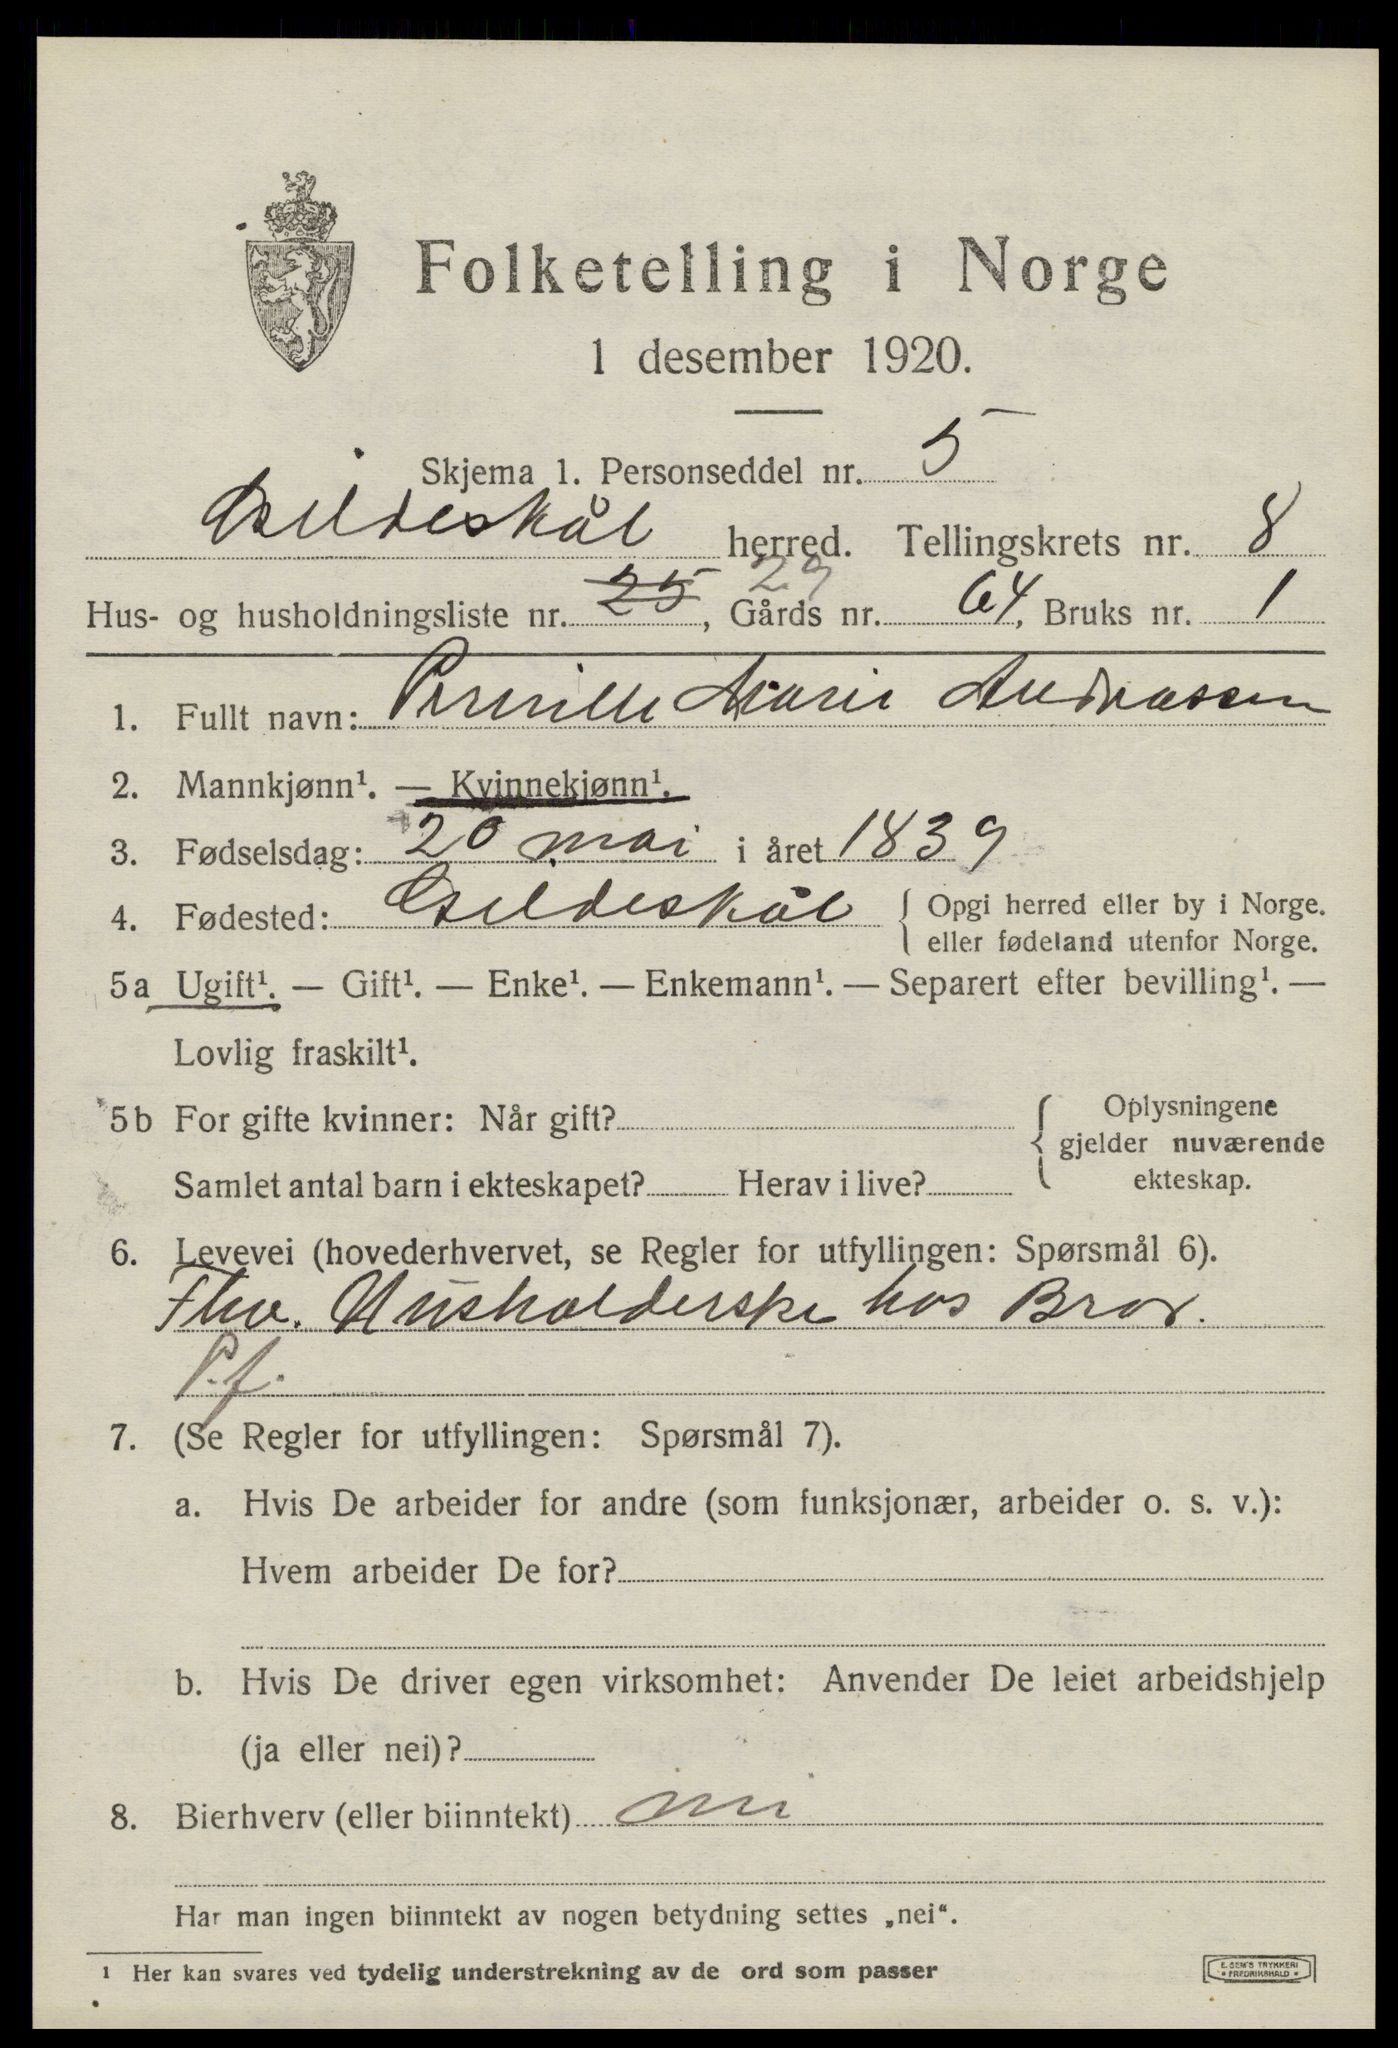 Folketelling i Norge
1 desember 1920.
Skjema 1. Personseddel nr. 5
Gildeskål herred. Tellingskrets nr. 8
Hus- og husholdningsliste nr. 25 29, Gårds nr. 64, Bruks nr. 1
1. Fullt navn: Pernille Marie Andreassen
2. Mannkjønn¹. — Kvinnekjønn¹.
3. Fødselsdag: 20 mai i året 1839
4. Fødested: Gildeskål { Opgi herred eller by i Norge.
eller fødeland utenfor Norge.
5a Ugift¹. — Gift¹. — Enke¹. — Enkemann¹. — Separert efter bevilling¹. —
Lovlig fraskilt¹.
5b For gifte kvinner: Når gift? { Oplysningene
gjelder nuværende
Samlet antal barn i ekteskapet? Herav i live? ekteskap.
6. Levevei (hovederhvervet, se Regler for utfyllingen: Spørsmål 6).
Husholderske hos Bror.
P.f.
7. (Se Regler for utfyllingen: Spørsmål 7).
a. Hvis De arbeider for andre (som funksjonær, arbeider o. s. v.):
Hvem arbeider De for?
b. Hvis De driver egen virksomhet: Anvender De leiet arbeidshjelp
(ja eller nei)?
8. Bierhverv (eller biinntekt) nei
Har man ingen biinntekt av nogen betydning settes „nei“.
¹ Her kan svares ved tydelig understrekning av de ord som passer
E. SEM'S TRYKKERI
* FREDRIKSHALD *